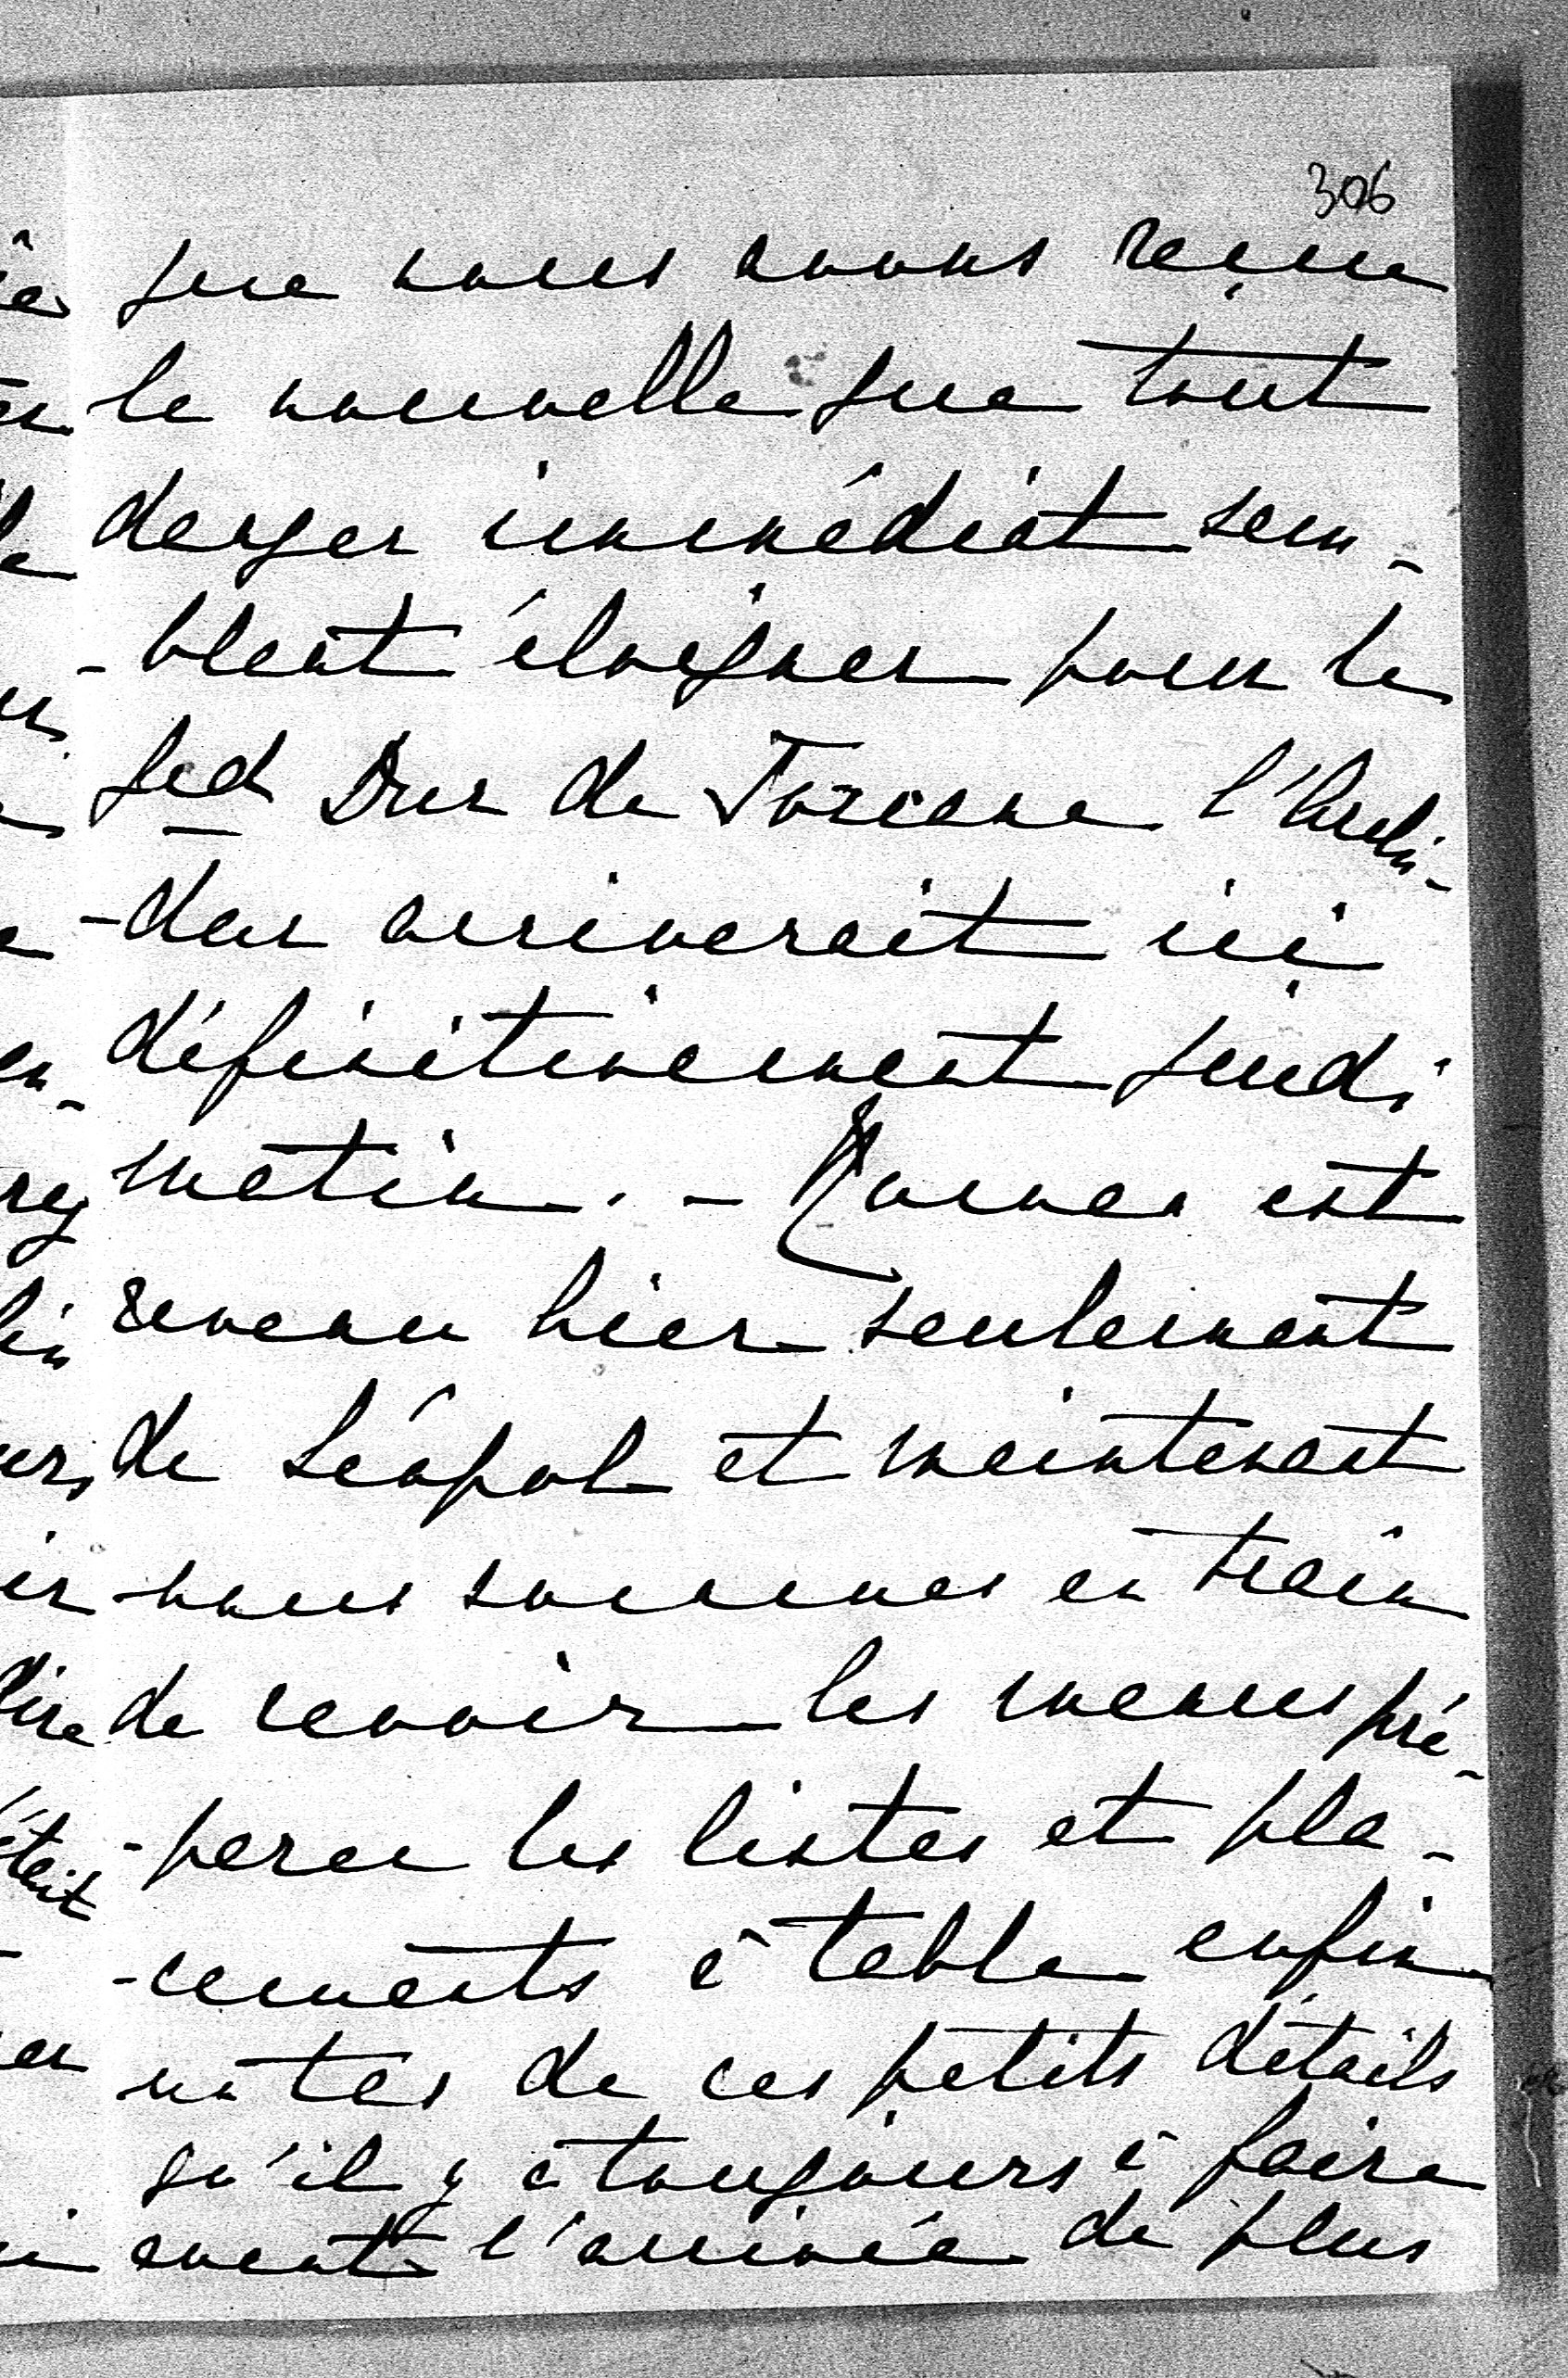 306
que nous avons reçue
la nouvelle que tout
danger immédiat sem-
-blant éloigner pour le
Grd Duc de Toscane l'Archi-
-duc arriverait ici
définitivement jeudi
matin. - est
revenu hier seulement
de Léopol et maintenant
nous sommes en train
de revoir les menus pré-
-parer les listes et pla-
-cements à table enfin
notes de ces petits détails
qu'il y a toujours à faire
avant l'arrivée de plus